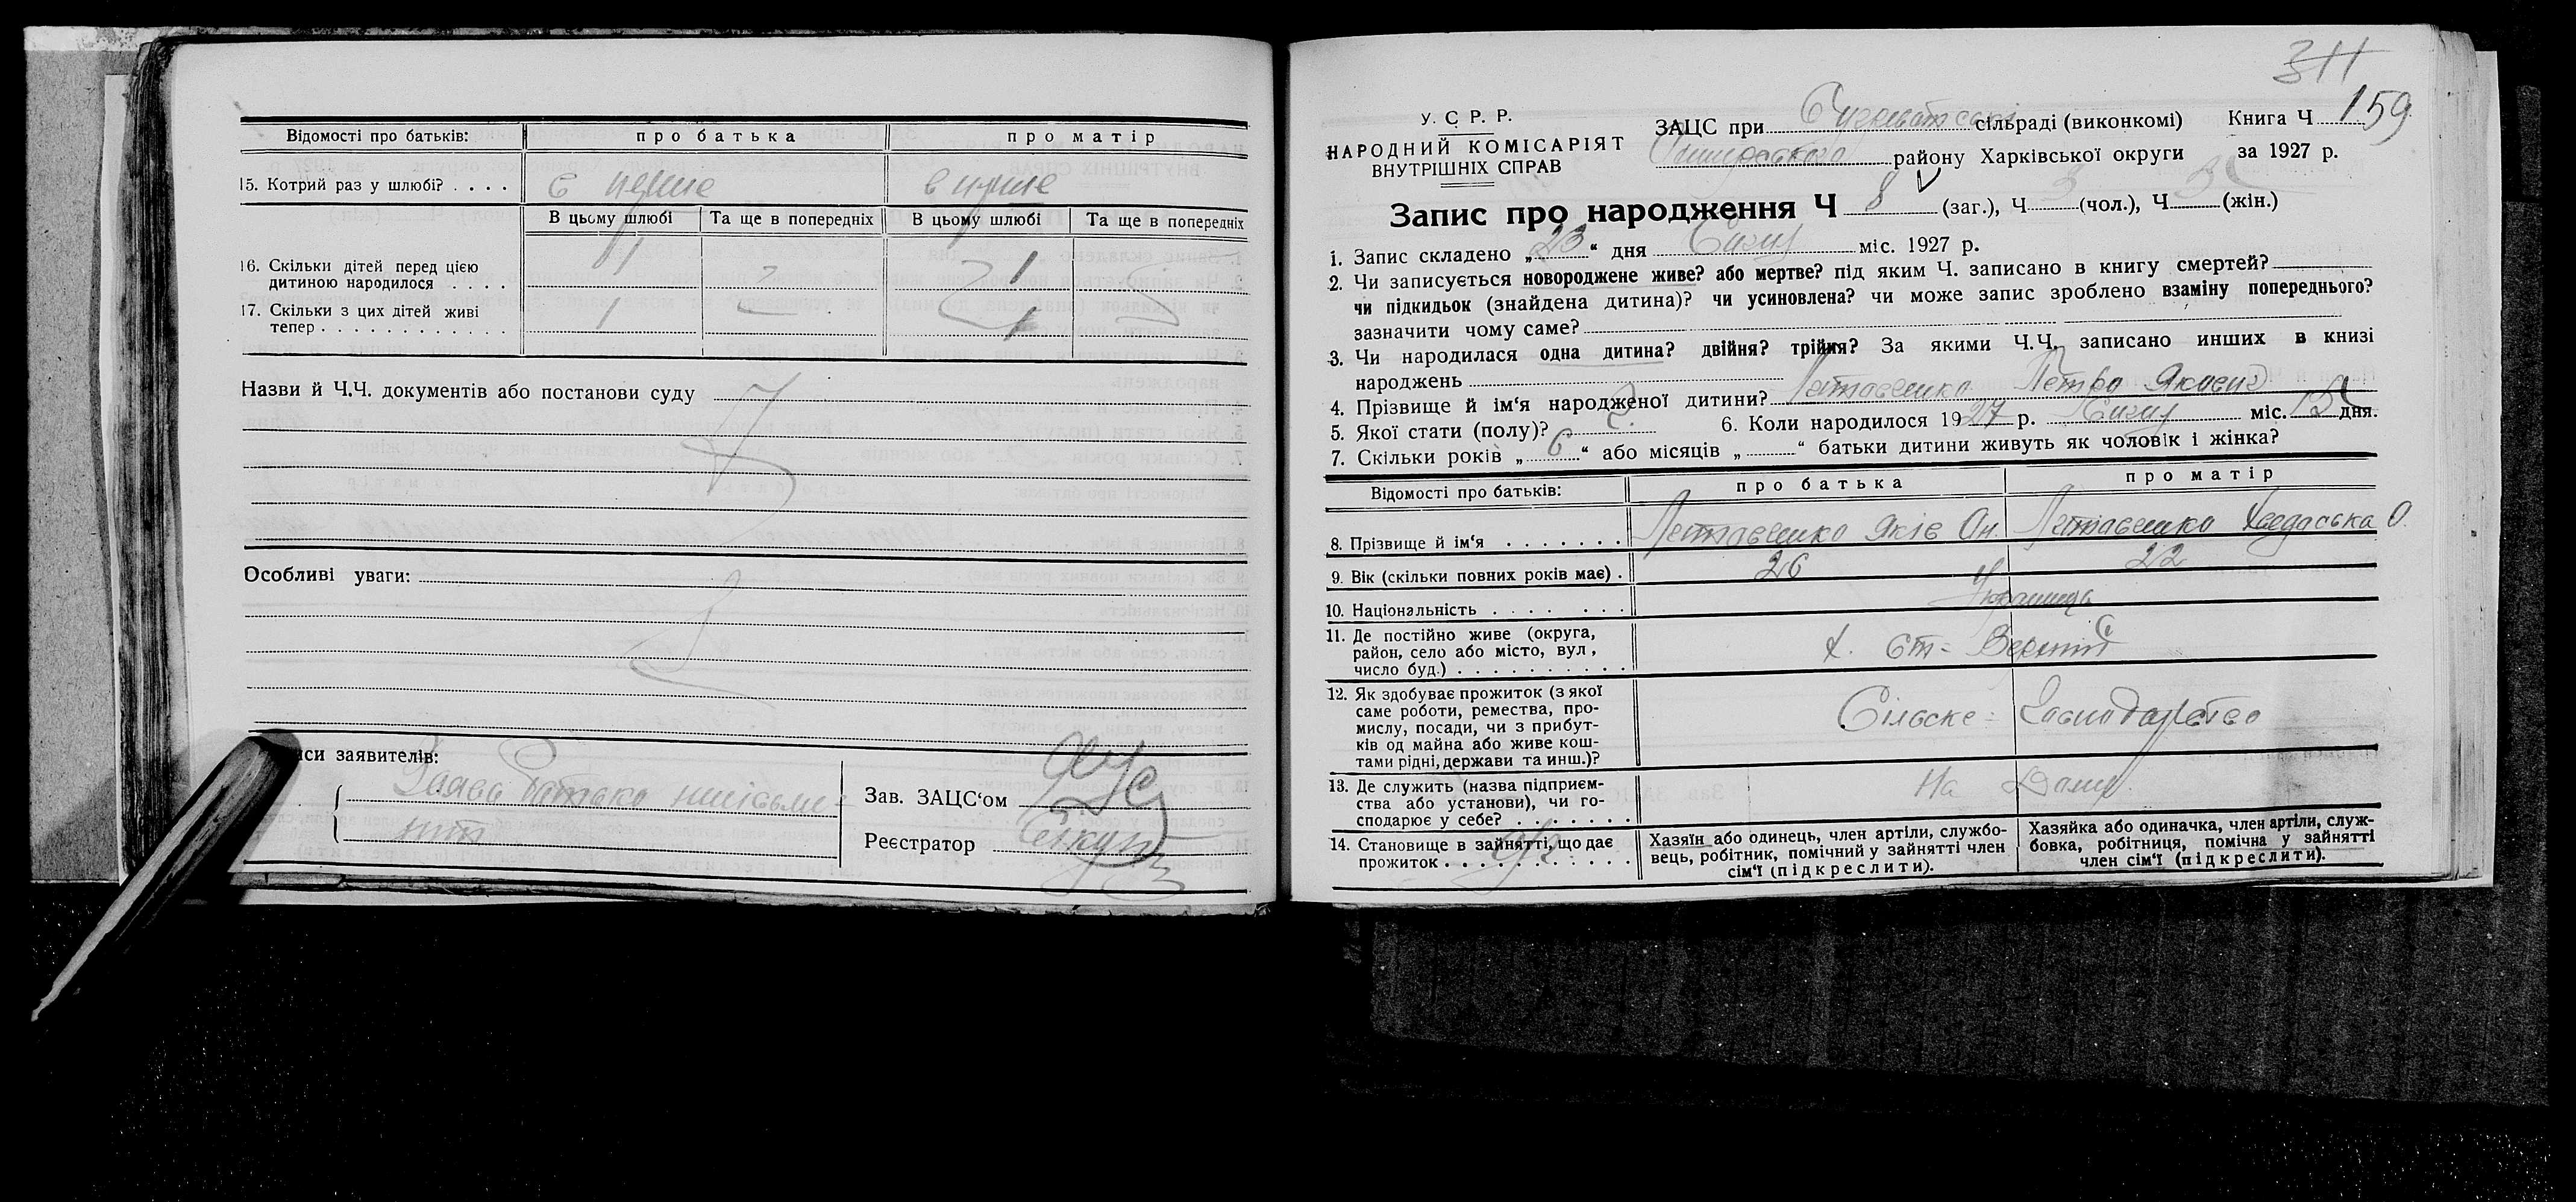 Відомості про батьків: про батька про матір
15. Котрий раз у шлюбі? . . . . в перше в перше
В цьому шлюбі Та ще в попередніх В цьому шлюбі Та ще в попередніх
16. Скільки дітей перед цією
дитиною народилося . . . . 1 1
17. Скільки з цих дітей живі
тепер . . . . . . . . . . . . 1 1
Назви й Ч.Ч. документів або постанови суду
Особливі уваги:
иси заявителів:
Заява батька
Зав. ЗАЦС‘ом
Реєстратор
311
У. С. Р. Р.
НАРОДНИЙ КОМІСАРІЯТ
ВНУТРІШНІХ СПРАВ
ЗАЦС при сільраді (виконкомі) Книга Ч 159
району Харківської округи за 1927 р.
Запис про народження Ч 8 (заг.), Ч 5 (чол.), Ч 3 (жін.)
1. Запис складено „23“ дня Січня міс. 1927 р.
2. Чи записується новороджене живе? або мертве? під яким Ч. записано в книгу смертей?
чи підкидьок (знайдена дитина)? чи усиновлена? чи може запис зроблено взаміну попереднього?
зазначити чому саме?
3. Чи народилася одна дитина? двійня? трійня? За якими Ч.Ч. записано инших в книзі
народжень
4. Прізвище й ім‘я народженої дитини? Петро Яковів
5. Якої стати (полу)? Ч. 6. Коли народилося 1927 р. Січня міс. 15 дня.
7. Скільки років „6“ або місяців „ “ батьки дитини живуть як чоловік і жінка?
Відомості про батьків: про батька про матір
8. Прізвище й ім‘я . . . . . . . Яків Он. О.
9. Вік (скільки повних років має) . 26 22
10. Національність . . . . . . . Українці
11. Де постійно живе (округа,
район, село або місто, вул,
число буд.) . . . . . . . . . . х. ст-
12. Як здобуває прожиток (з якої
саме роботи, ремества, про-
мислу, посади, чи з прибут-
ків од майна або живе кош-
тами рідні, держави та инш.)? Сільске-Господарство
13. Де служить (назва підприєм-
ства або установи), чи го-
сподарює у себе? . . . . . . . На Дому
14. Становище в зайнятті, що дає
прожиток . . . . . . . . . . .
Хазяїн або одинець, член артіли, службо-
вець, робітник, помічний у зайнятті член
сім‘ї (підкреслити).
Хазяйка або одиначка, член артіли, служ-
бовка, робітниця, помічна у зайнятті
член сім‘ї (підкреслити).